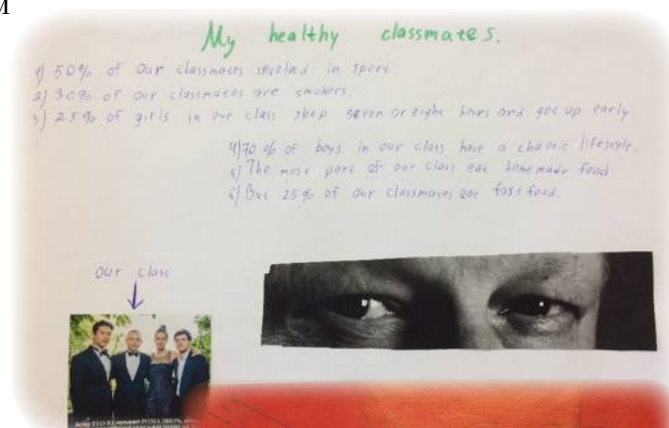 My healthy classmates.
1) 50% of our classmates involved in sport.
2) 30% of our classmates are smokers
3) 25% of girls in our class sleep seven or eight hours and get up early.
4) 70% of boys in our class have a chaotic lifestyle.
5) The most part of our class eat homemade food.
6) But 25% of our classmates eat fast food.
our class